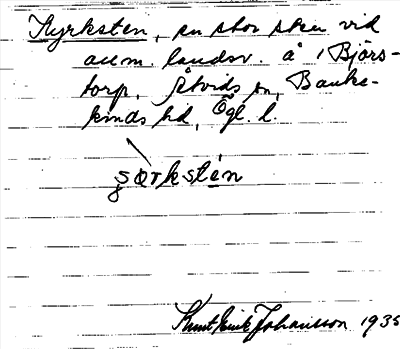 Kyrksten, en stor sten vid
allm. landsv. å 1 Bjärs-
torp, Åtvids sn, Banke-
kinds hd, Ögl. l.
Knut Erik Johansson 1935